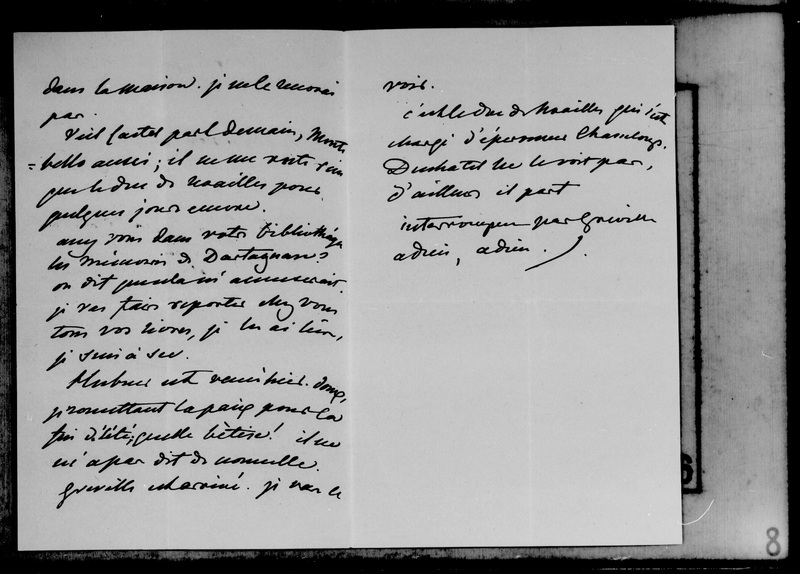 dans la maison. je ne le verrai
pas.
Viel Castel part demain, Monte
=bello aussi; il ne me reste
que le duc de Noailles pour
quelques jours encore.
avez vous dans votre bibliothèque
les mémoires de Dartagnan?
on dit que cela m'amuserait.
je vas faire reporter chez vous
tous vos livres, je les ai lus,
je suis à sec.
Hubner est venu hier. doux,
promettant la paix pour la
fin d'été; quelle bêtise! il ne
m'a pas dit de nouvelle.
Greville est arrivé. je vas le
voir.
c'est le duc de Noailles qui s'est
chargé d'éperonner Chasseloup.
Duchatel ne le voit pas,
d'ailleurs il part
interrompue par Greville
adieu, adieu.
8